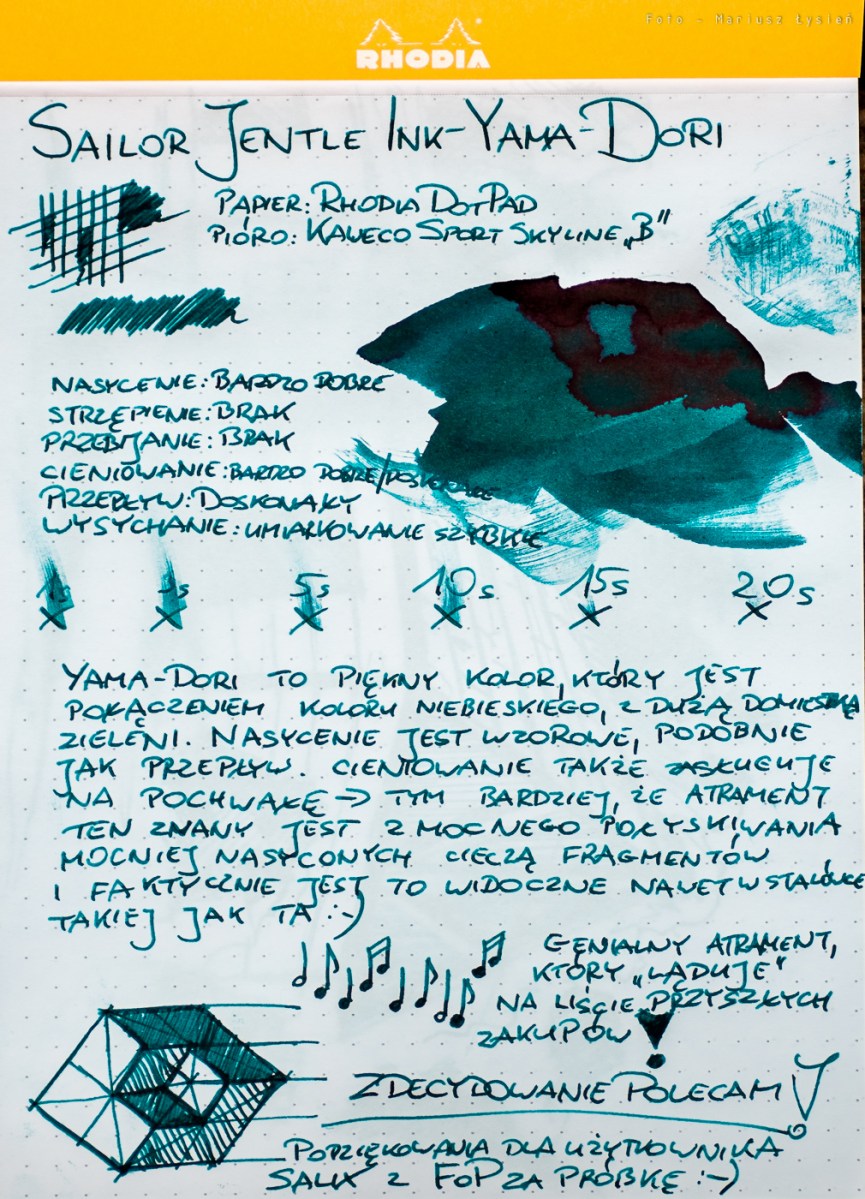 Foto - Mariusz Łysień
RHODIA
SAILOR JENTLE INK-YAMA-DORI
PAPIER: RHODIA DOTPAD
PIÓRO: KAWECO SPORT SKYLINE „B"
NASYCENIE: BARDZO DOBRE
STRZĘPIENIE: BRAK
PRZEBIJANIE: BRAK
CIENIOWANIE: BARDZO DOBRE/DOSKONAŁE
PRZEPŁYW: DOSKONAŁY
WYSYCHANIE: UMIARKOWANIE SZYBKIE
1s 3s 5s 10s 15s 20s
YAMA-DORI TO PIĘKNY KOLOR, KTÓRY JEST
POŁĄCZENIEM KOLORU NIEBIESKIEGO, Z DUŻĄ DOMIESZKĄ
ZIELENI. NASYCENIE JEST WZOROWE, PODOBNIE
JAK PRZEPŁYW. CIENIOWANIE TAKŻE ZASŁUGUJE
NA POCHWAŁĘ -> TYM BARDZIEJ, ŻE ATRAMENT
TEN ZNANY JEST Z MOCNEGO POŁYSKIWANIA
MOCNIEJ NASYCONYCH CIECZĄ FRAGMENTÓW
I FAKTYCZNIE JEST TO WIDOCZNE NAWET W STALÓWCE
TAKIEJ JAK TA :-)
GENIALNY ATRAMENT,
KTÓRY „LĄDUJE"
NA LIŚCIE PRZYSZŁYCH
ZAKUPÓW!
ZDECYDOWANIE POLECAM!
PODZIĘKOWANIA DLA UŻYTKOWNIKA
SALIX Z FOP ZA PRÓBKĘ :-)